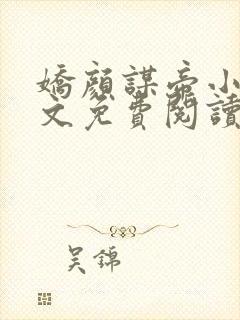 嬌顏謀帝小
文免費閱讀
吴錦